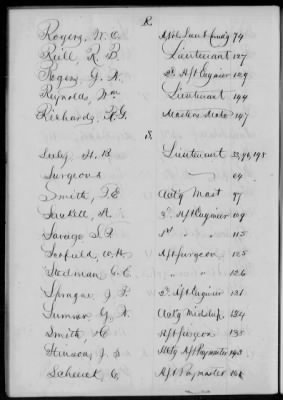 R
Rogers, W. C. Act'g Lieut Comd'g 74
Reill, R. B. Lieutenant 127
Rogers, G. A. 2d Ast Engineer 129
Reynolds, Wm Lieutenant 144
Richards, F. G. Masters Mate 147
S
Seely, H. B Lieutenant
Surgeons 64
Smith, T. E Act'g Mast 97
Sackell, A. 3d Ast Engineer 109
Savage S. P. 1st " 115
Scofield, W. K. Ast Surgeon 125
Stedman, C. E. " " 126
Sprague, J. P. 2d Ast Engineer 131
Sumner G. W. Act'g Midship 134
Smith, Ast Surgeon 138
Stinson, J. S Act'g Ast Paymaster 143
Schenck, C. Ast Paymaster